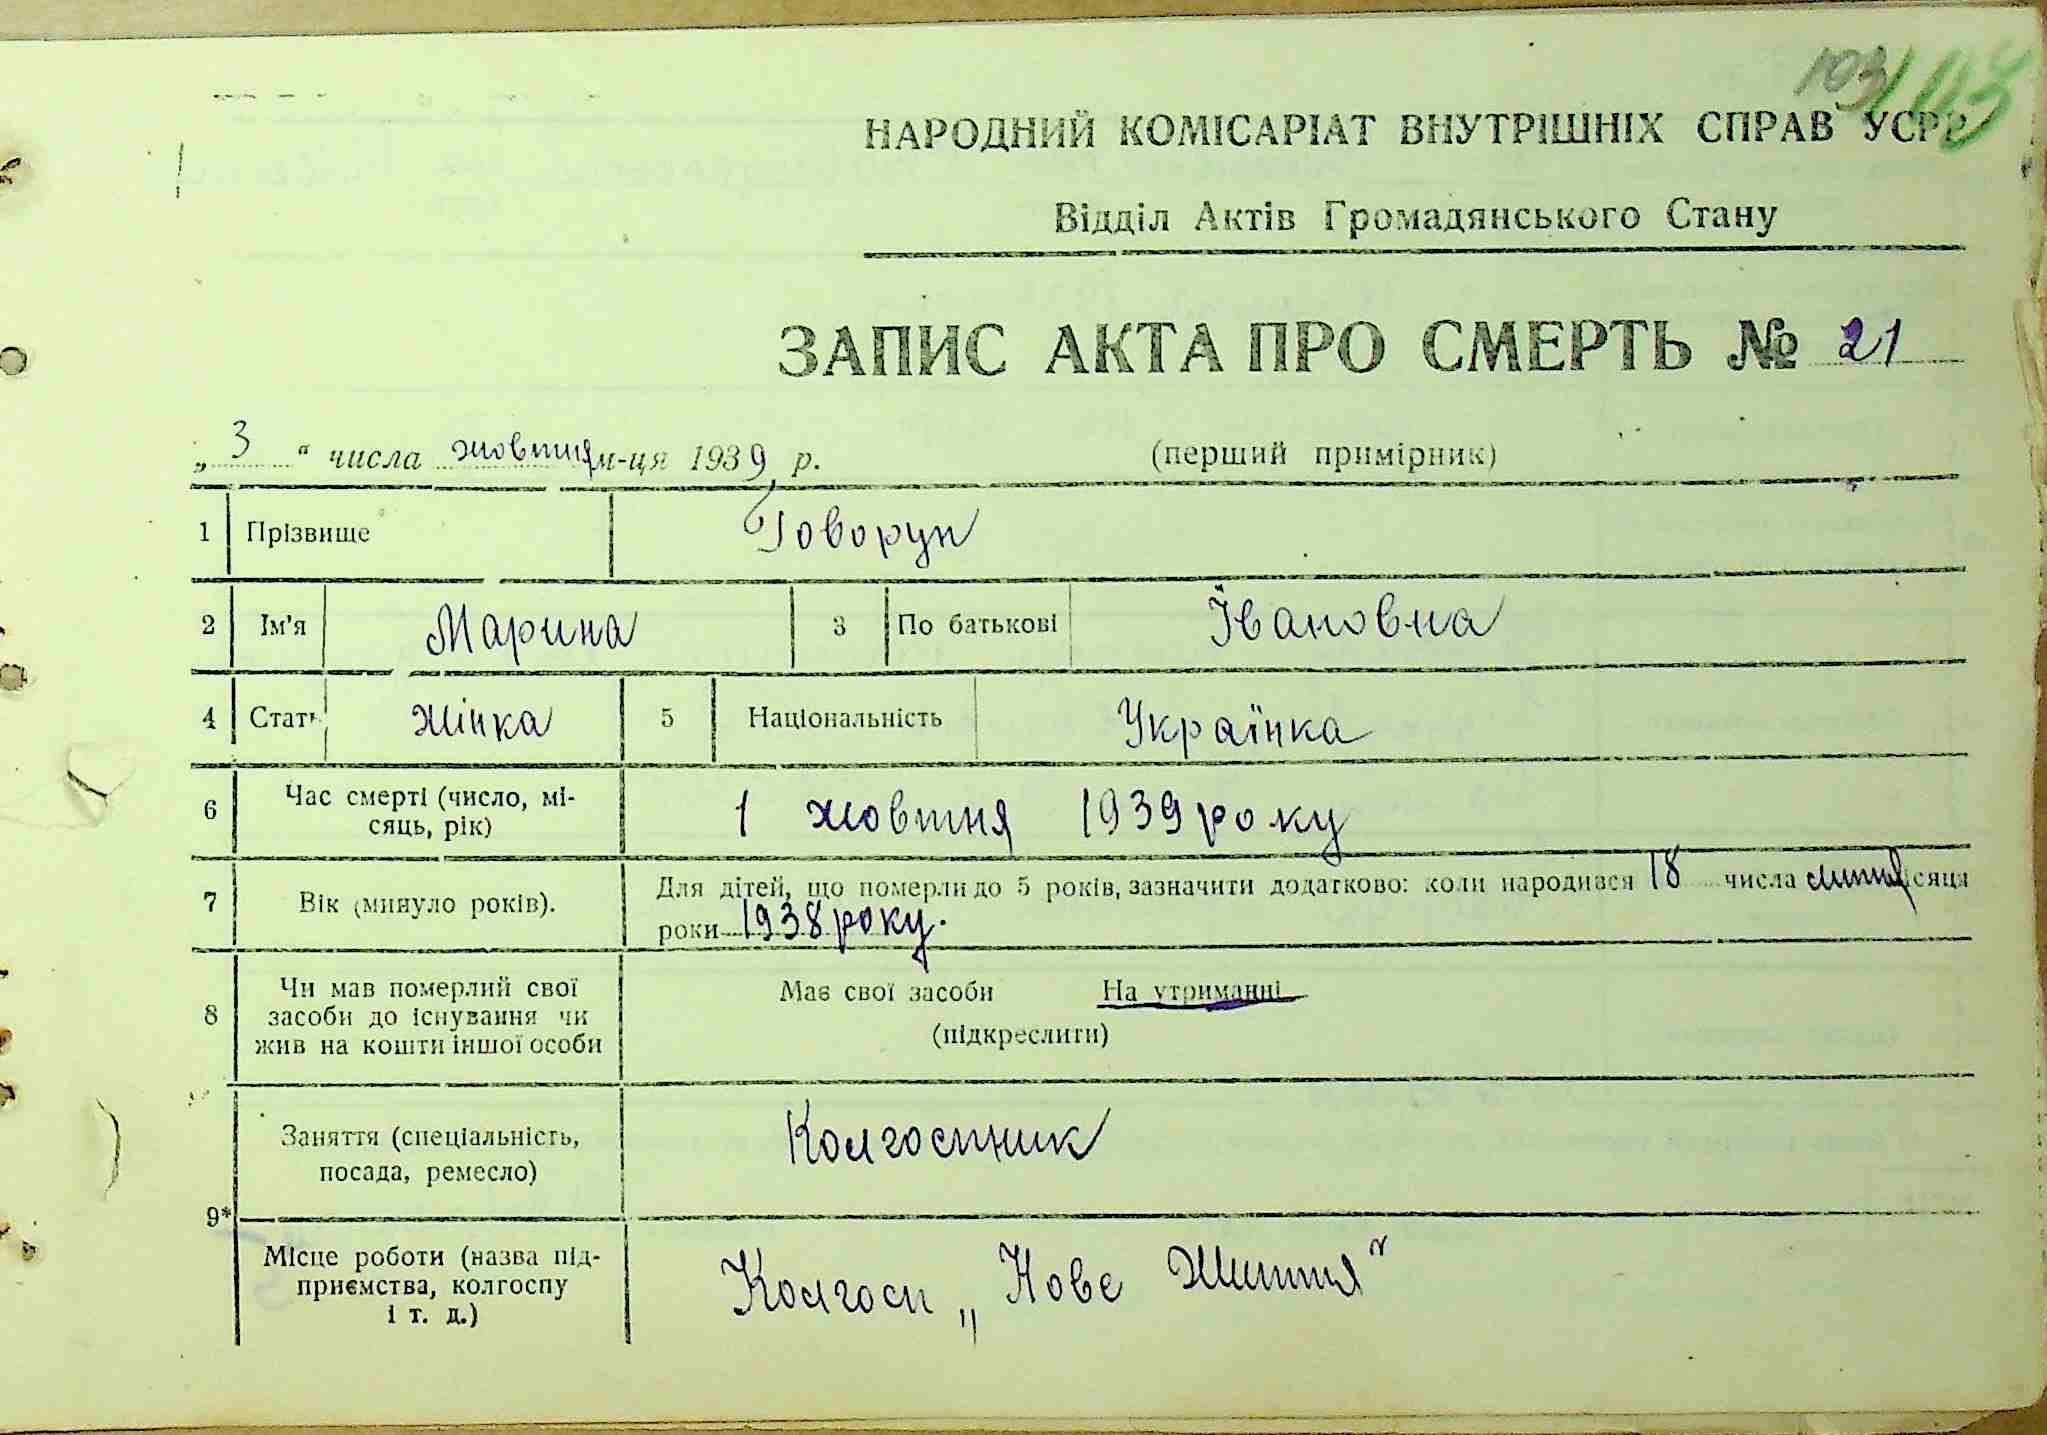 103 103
НАРОДНИЙ КОМІСАРІАТ ВНУТРІШНІХ СПРАВ УСРР
Відділ Актів Громадянського Стану
ЗАПИС АКТА ПРО СМЕРТЬ № 21
„ 3 “ числа жовтня м-ця 1939 р. (перший примірник)
1 Прізвище Говорун
2 Ім'я Марина 3 По батькові Івановна
4 Стать жінка 5 Національність Українка
6 Час смерті (число, мі-
сяць, рік) 1 жовтня 1939 року
7 Вік (минуло років). Для дітей, що померли до 5 років, зазначити додатково: коли народився 18 числа липня місяця
роки 1938 року.
8 Чи мав померлий свої
засоби до існування чи
жив на кошти іншої особи
Має свої засоби На утриманні
(підкреслити)
9*
Заняття (спеціальність,
посада, ремесло) Колгоспник
Місце роботи (назва під-
приємства, колгоспу
і т. д.) Колгосп „Нове Життя“